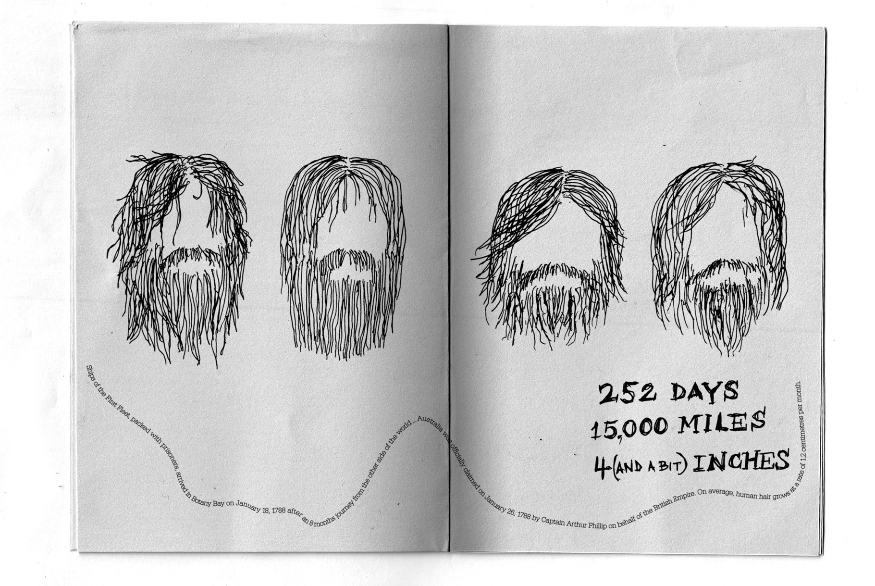 Ships of the First Fleet, packed with prisoners, arrived in Botany Bay on January 18, 1788 after an 8 months journey from the other side of the world... Australia was officially claimed on January 26, 1788 by Captain Arthur Phillip on behalf of the British Empire. On average, human hair grows at a rate of 1.2 centimetres per month.
252 DAYS
15,000 MILES
4 (AND A BIT) INCHES